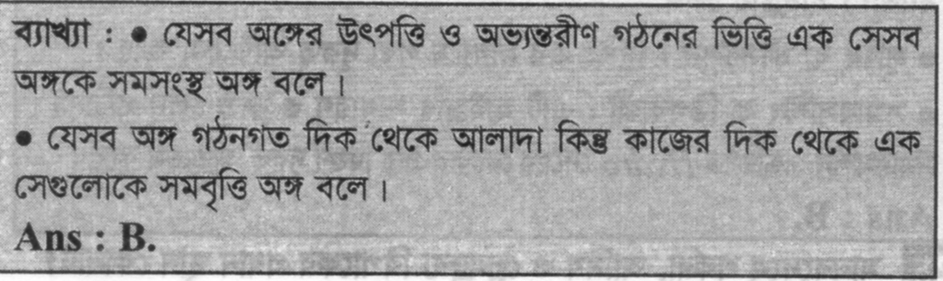 ব্যাখ্যা : ● যেসব অঙ্গের উৎপত্তি ও অভ্যন্তরীণ গঠনের ভিত্তি এক সেসব
অঙ্গকে সমসংস্থ অঙ্গ বলে ।
● যেসব অঙ্গ গঠনগত দিক থেকে আলাদা কিন্তু কাজের দিক থেকে এক
সেগুলোকে সমবৃত্তি অঙ্গ বলে ।
Ans : B.